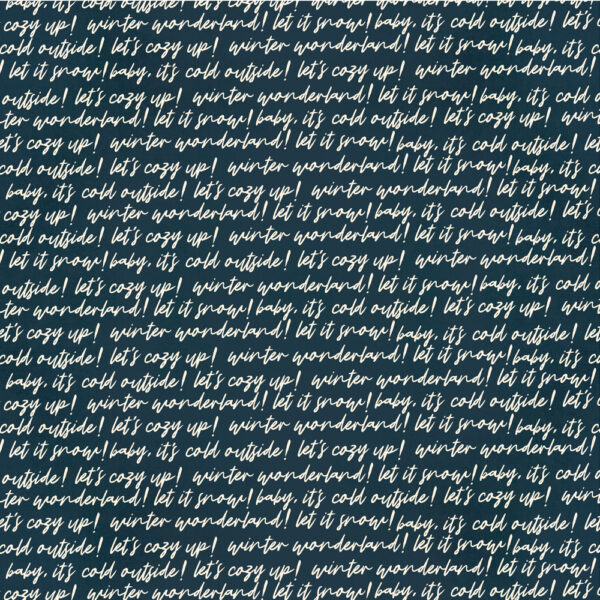 cozy up! winter wonderland! let it snow! baby, it's cold outside! let's
cold outside! let's cozy up! winter wonderland! let it snow! baby, it's co
! let it snow! baby, it's cold outside! let's cozy up! winter wonderland!
outside! let's cozy up! winter wonderland! let it snow! baby, it's cold o
ter wonderland! let it snow! baby, it's cold outside! let's cozy up! wint
et's cozy up! winter wonderland! let it snow! baby, it's cold outside! le
cold outside! let's cozy up! winter wonderland! let it snow! baby, it's co
baby, it's cold outside! let's cozy up! winter wonderland! let it snow!
cozy up! winter wonderland! let it snow! baby, it's cold outside! let's
cold outside! let's cozy up! winter wonderland! let it snow! baby, it's co
! let it snow! baby, it's cold outside! let's cozy up! winter wonderland!
outside! let's cozy up! winter wonderland! let it snow! baby, it's cold o
ter wonderland! let it snow! baby, it's cold outside! let's cozy up! wint
et's cozy up! winter wonderland! let it snow! baby, it's cold outside! le
cold outside! let's cozy up! winter wonderland! let it snow! baby, it's co
baby, it's cold outside! let's cozy up! winter wonderland! let it snow!
cozy up! winter wonderland! let it snow! baby, it's cold outside! let's
cold outside! let's cozy up! winter wonderland! let it snow! baby, it's co
! let it snow! baby, it's cold outside! let's cozy up! winter wonderland!
outside! let's cozy up! winter wonderland! let it snow! baby, it's cold o
ter wonderland! let it snow! baby, it's cold outside! let's cozy up! wint
et's cozy up! winter wonderland! let it snow! baby, it's cold outside! le
cold outside! let's cozy up! winter wonderland! let it snow! baby, it's co
baby, it's cold outside! let's cozy up! winter wonderland! let it snow!
cozy up! winter wonderland! let it snow! baby, it's cold outside! let's